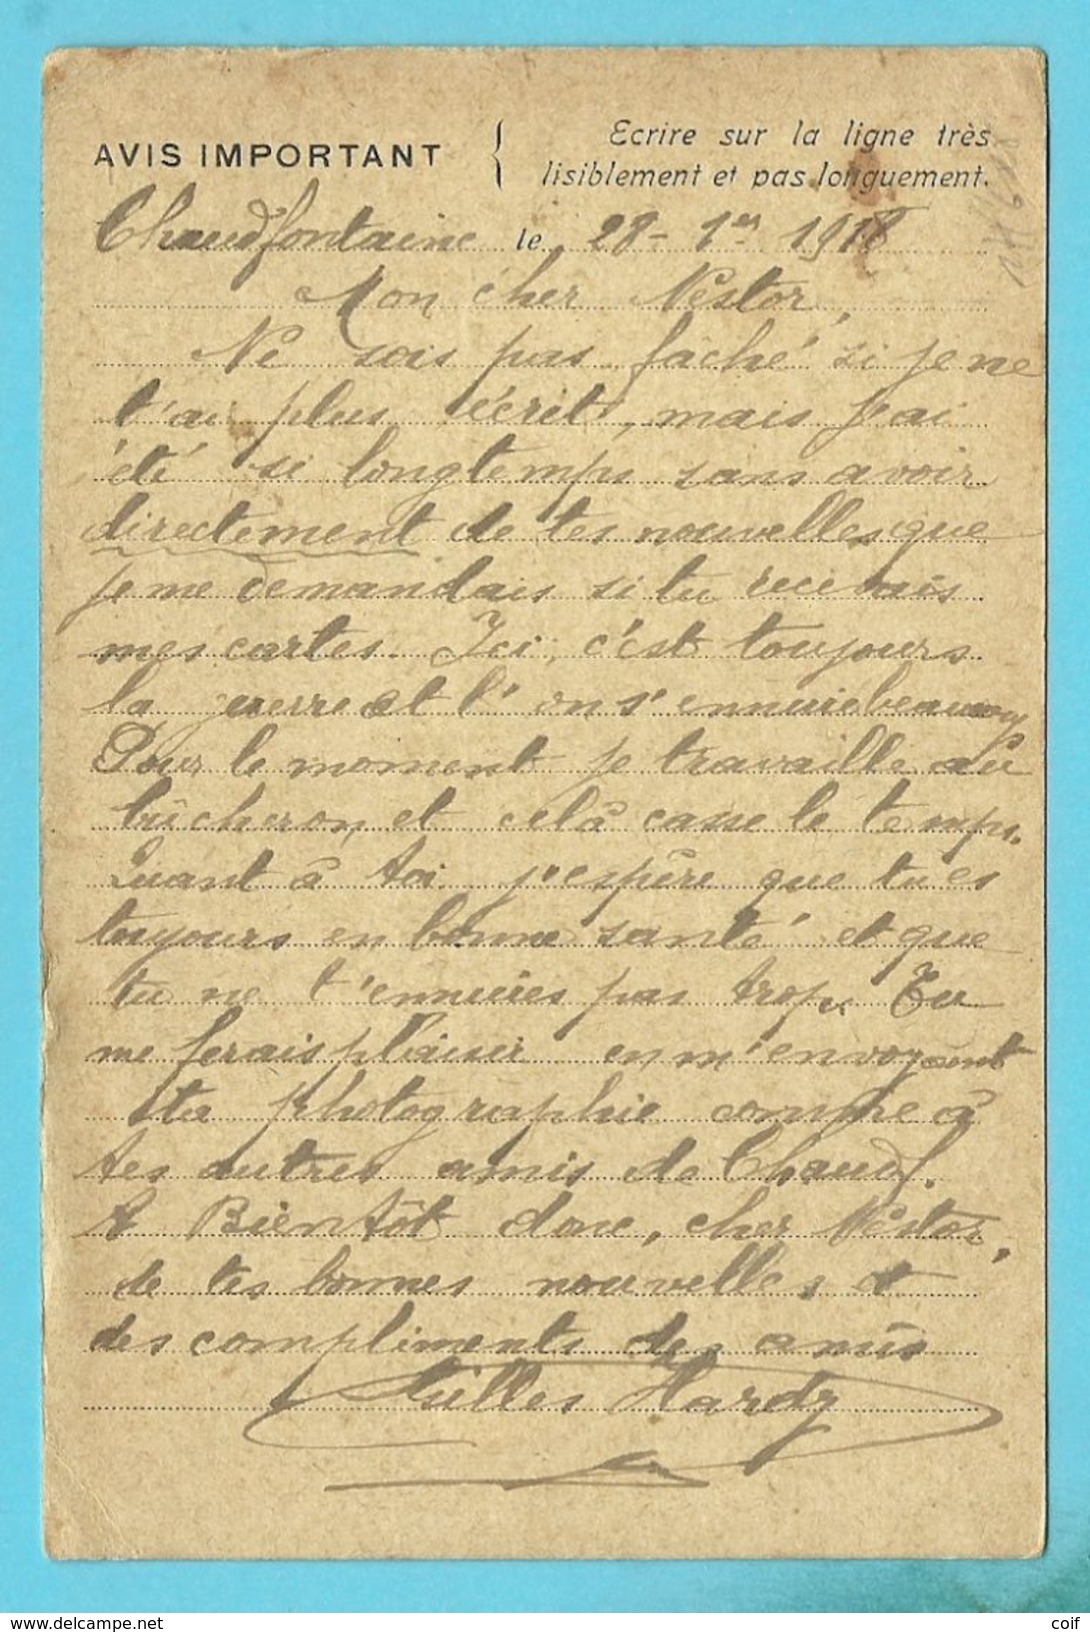 AVIS IMPORTANT
Ecrire sur la ligne très
lisiblement et pas longuement.
Chaudfontaine le 28 - 1er 1918
Mon cher Nestor,
Ne sois pas fâché si je ne
t'ai plus écrit, mais j'ai
été si longtemps sans avoir
directement de tes nouvelles que
je me demandais si tu recevais
mes cartes. Ici, c'est toujours
la guerre et l'on s'ennuie beaucoup
Pour le moment je travaille au
bûcheron, et celà casse le temps.
Quant à toi, j'espère que tu es
toujours en bonne santé et que
tu ne t'ennuies pas trop. Tu
me ferais plaisir en m'envoyant
ta photographie comme à
tes autres amis de Chaudf.
A Bientôt donc, cher Nestor,
de tes bonnes nouvelles et
des compliments des amis
Hardy
delcampe.net
coif